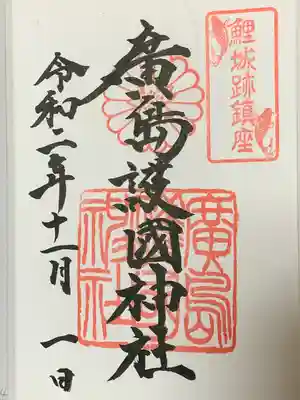 鯉城跡鎮座
廣島護國神社
廣島護國神社
令和二年十一月 一日